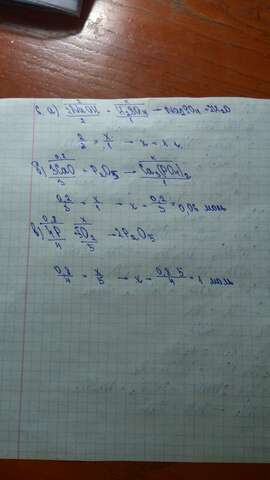 6. а) 2NaOH + H₂SO₄ → Na₂SO₄ + 2H₂O
2/2 = x/1 → x = 1
0,2 x
б) 3CaO + P₂O₅ → Ca₃(PO₄)₂
3 1
0,2/3 = x/1 → x = 0,2/3 = 0,06 моль
0,8 x
в) 4P 5O₂ → 2P₂O₅
4 5
0,8/4 = x/5 → x = 0,8·5/4 = 1 моль